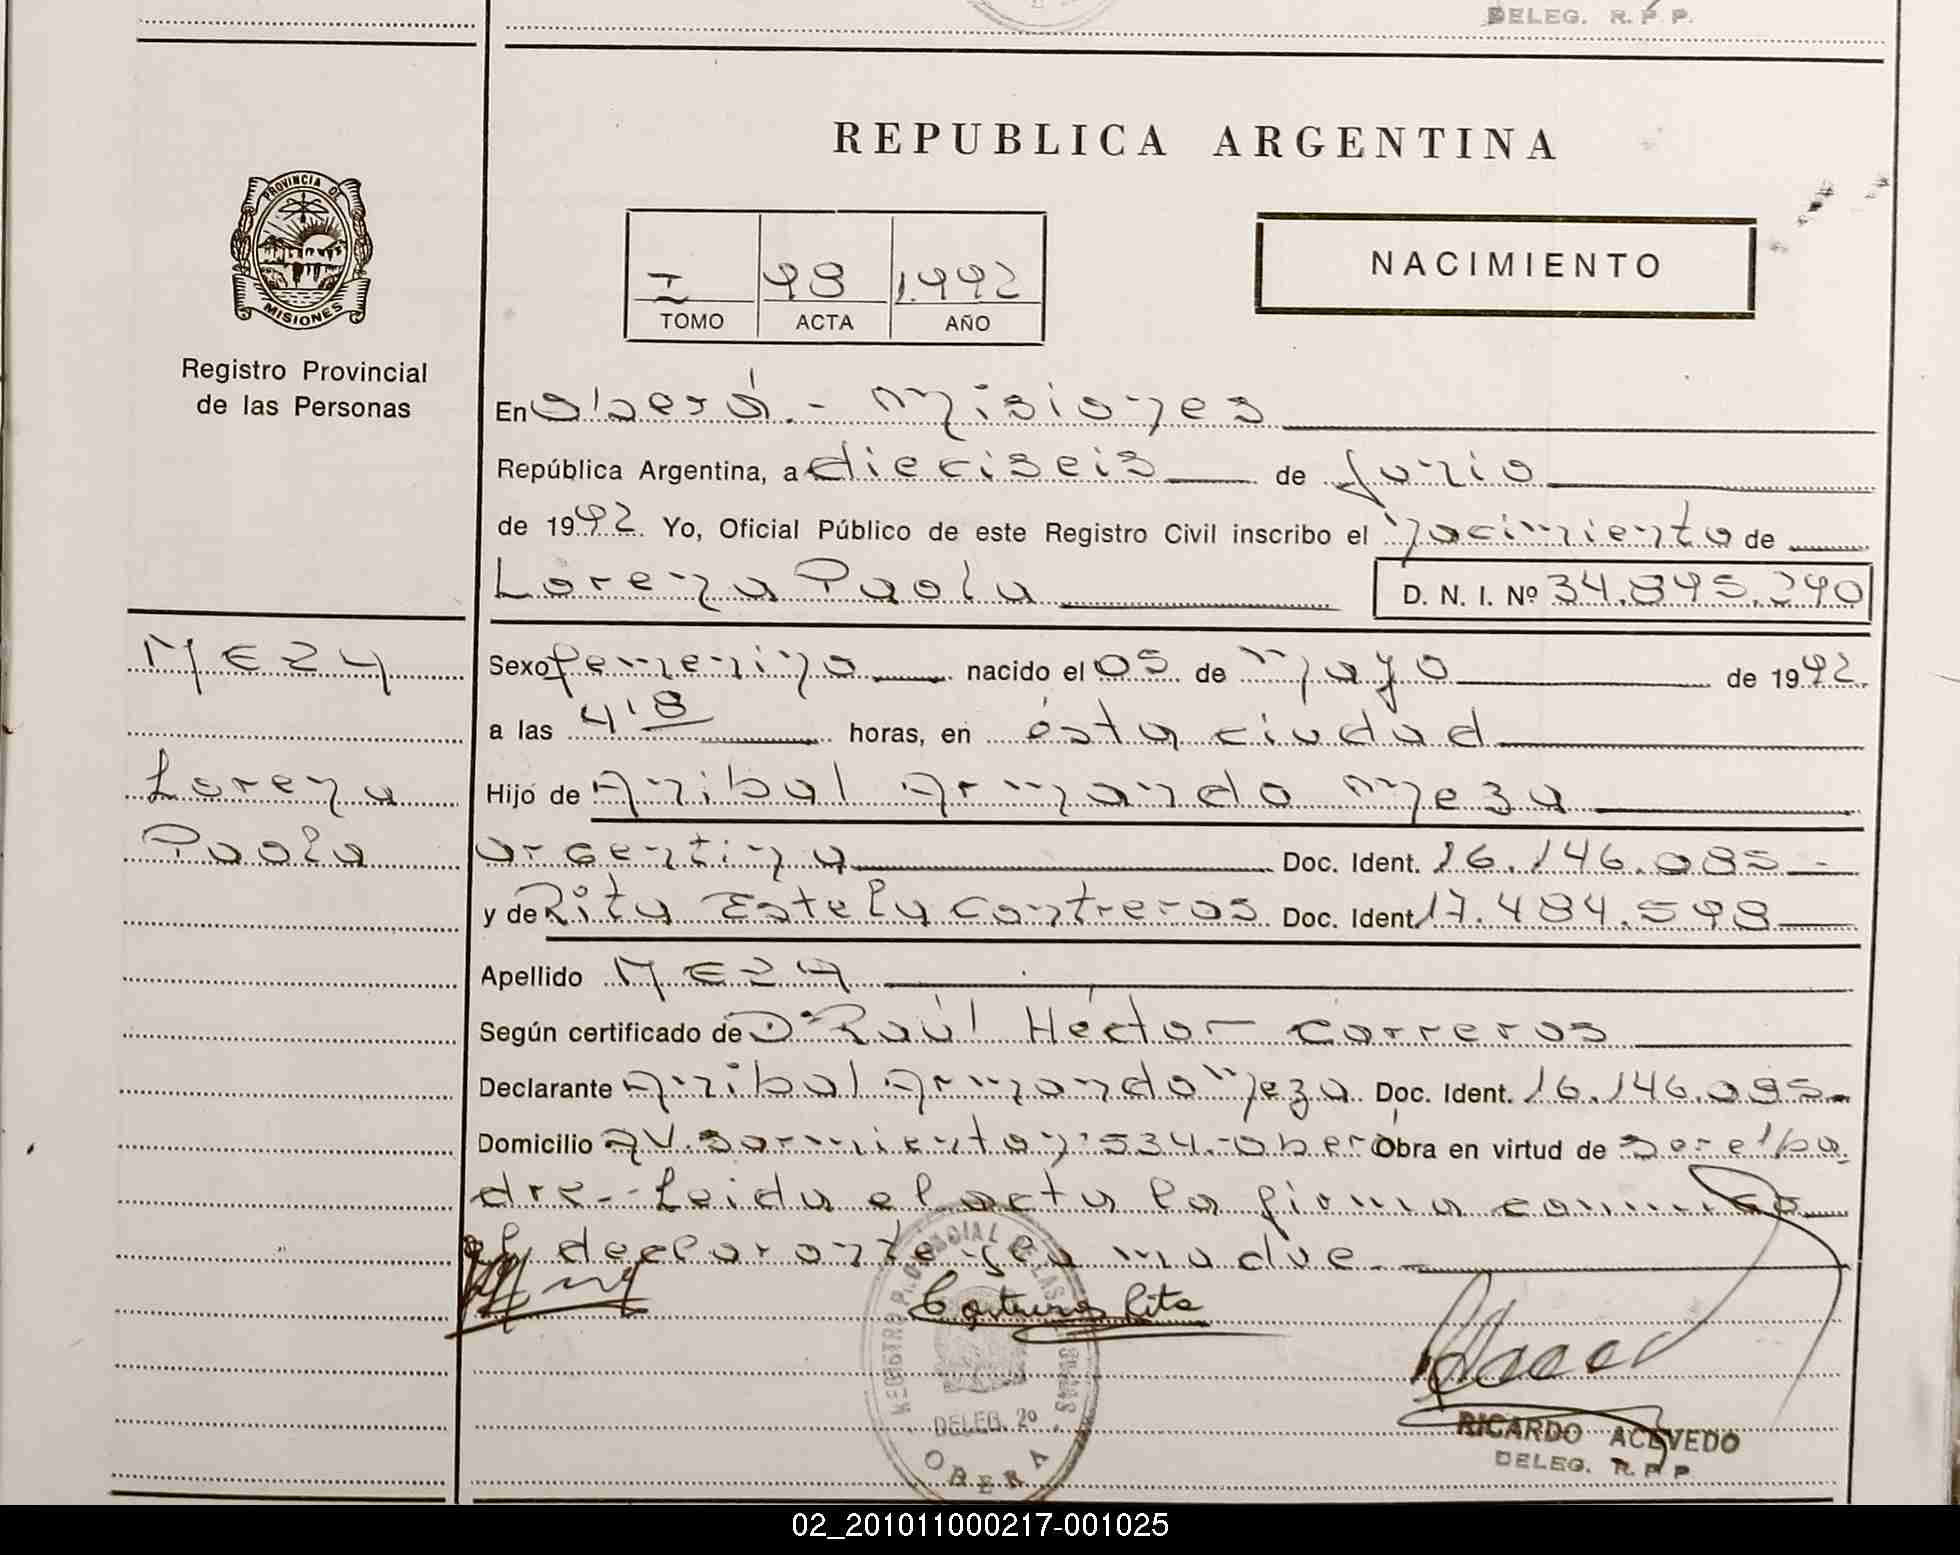 DELEG. R. P. P.
REPUBLICA ARGENTINA
PROVINCIA DE
MISIONES
Registro Provincial
de las Personas
I 98 1.992
TOMO ACTA AÑO
NACIMIENTO
En Oberá.- Misiones
República Argentina, a dieciseis de Junio
de 1992. Yo, Oficial Público de este Registro Civil inscribo el nacimiento de
Lorena Paola D. N. I. Nº 34.895.290
MEZA
Sexo femenino nacido el 05 de mayo de 1992.
a las 4'8 horas, en ésta ciudad
Lorena
Hijo de Anibal Armando Meza
Paola
argentina Doc. Ident. 16.146.085.-
y de Rita Estela Contreras Doc. Ident. 17.484.598
Apellido MEZA
Según certificado de Dr Raúl Héctor Carreras
Declarante Anibal Armando Meza Doc. Ident. 16.146.085.-
Domicilio AV. Sarmiento nº 534.-Oberá Obra en virtud de ser el pa-
dre.- Leida el acta la firma conmigo
el declarante y la madre.
Contreras Rita
REGISTRO PROVINCIAL DE LAS PERSONAS
DELEG. 2º
OBERA
RICARDO ACEVEDO
DELEG. R. P. P.
02_201011000217-001025